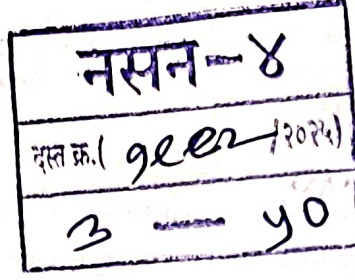 नसन-४
दस्त क्र.( १९९२ /२०२५)
३ — ५०